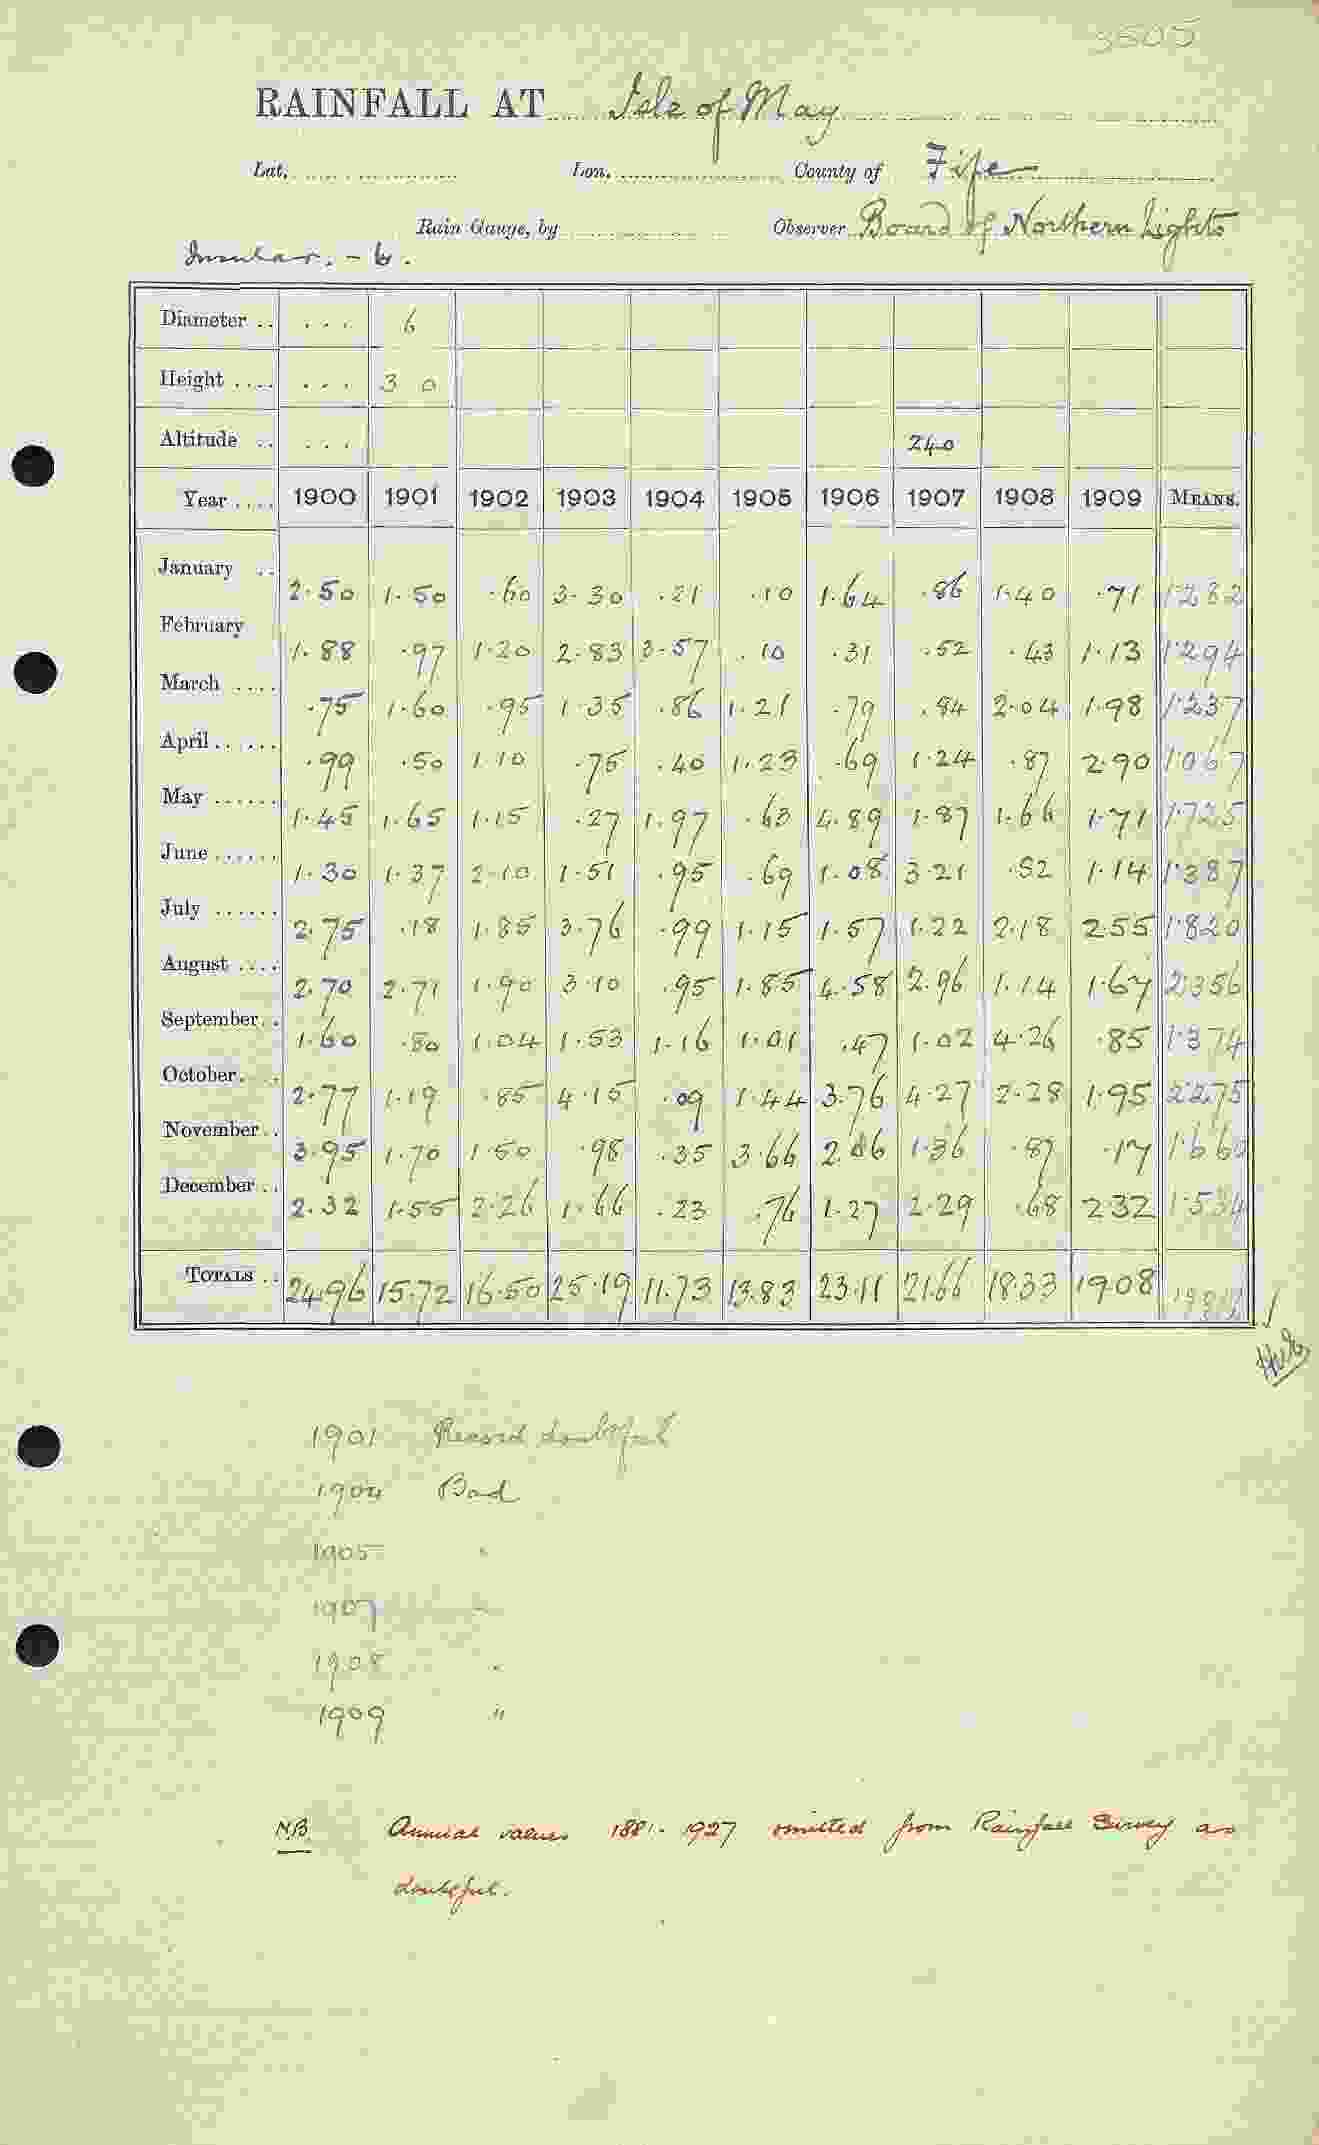 3605
RAINFALL AT Isle of May
Lat. Lon. County of Fife
Rain Gauge, by Observer Board of Northern Lights
Insular. - 6.
Diameter .. ... 6
Height .... ... 3 0
Altitude .. ... 240
Year .... 1900 1901 1902 1903 1904 1905 1906 1907 1908 1909 MEANS.
January .. 2.50 1.50 .60 3.30 .21 .10 1.64 .86 1.40 .71 1.282
February 1.88 .97 1.20 2.83 3.57 .10 .31 .52 .43 1.13 1.294
March .... .75 1.60 .95 1.35 .86 1.21 .79 .84 2.04 1.98 1.237
April ...... .99 .50 1.10 .75 .40 1.23 .69 1.24 .87 2.90 1.067
May ...... 1.45 1.65 1.15 .27 1.97 .63 4.89 1.87 1.66 1.71 1.725
June ...... 1.30 1.37 2.10 1.51 .95 .69 1.08 3.21 .52 1.14 1.387
July ...... 2.75 .18 1.85 3.76 .99 1.15 1.57 1.22 2.18 2.55 1.820
August .... 2.70 2.71 1.90 3.10 .95 1.85 4.58 2.96 1.14 1.67 2.356
September .. 1.60 .80 1.04 1.53 1.16 1.01 .47 1.02 4.26 .85 1.374
October .... 2.77 1.19 .85 4.15 .09 1.44 3.76 4.27 2.28 1.95 2.275
November .. 3.95 1.70 1.50 .98 .35 3.66 2.06 1.36 .87 .17 1.660
December .. 2.32 1.55 2.26 1.66 .23 .76 1.27 2.29 .68 2.32 1.534
TOTALS .. 24.96 15.72 16.50 25.19 11.73 13.83 23.11 21.66 18.33 19.08
1901 Record doubtful
1904 Bad
1905 "
1907 "
1908 "
1909 "
N.B. Annual values 1881-1927 omitted from Rainfall Survey as
doubtful.